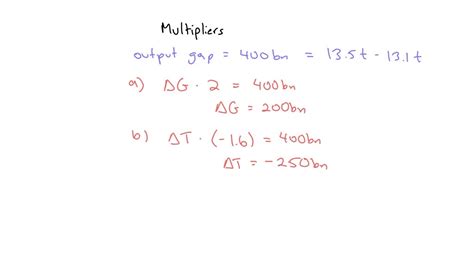 Multipliers
output gap = 400bn = 13.5t - 13.1t
a) ΔG · 2 = 400bn
ΔG = 200bn
b) ΔT · (-1.6) = 400bn
ΔT = -250bn